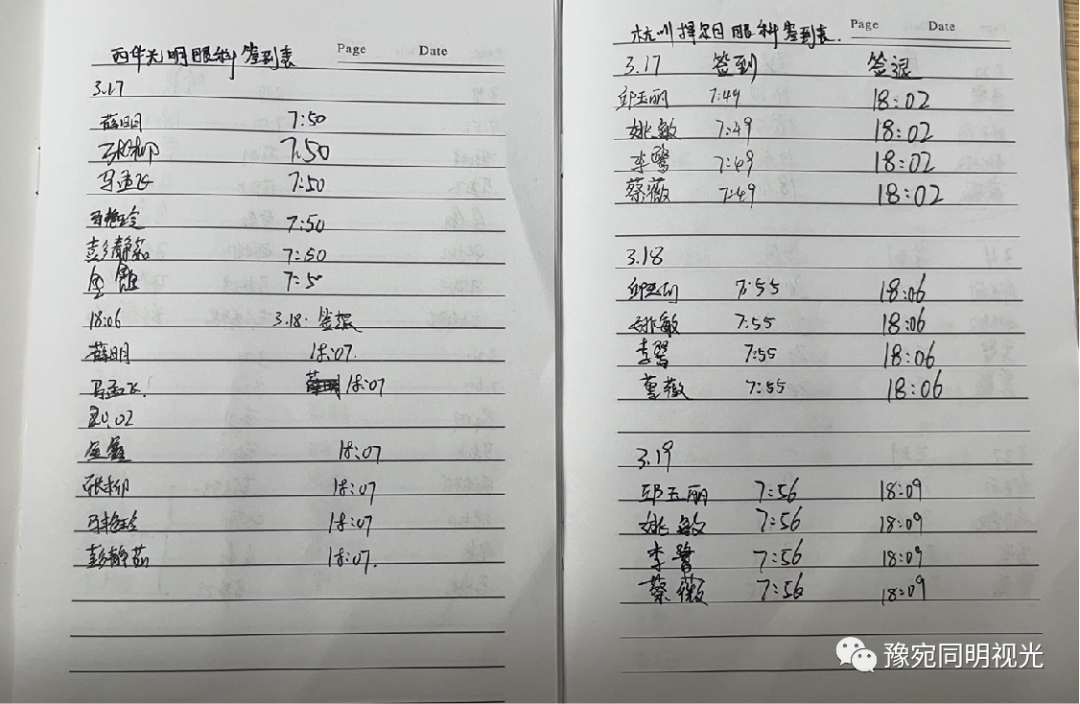 西华光明眼科签到表
Page Date
3.17
薛明 7:50
张柳 7:50
马孟飞 7:50
7:50
彭静茹 7:50
7:50
18:06 3.18. 签退
薛明 18:07.
马孟飞. 18:07
18:07
张柳 18:07
18:07
彭静茹 18:07.
杭州择尔日眼科签到表. Page Date
3.17 签到 签退
邱玉丽 7:49 18:02
姚敏 7:49 18:02
李鹭 7:49 18:02
蔡薇 7:49 18:02
3.18
邱玉丽 7:55 18:06
姚敏 7:55 18:06
李鹭 7:55 18:06
7:55 18:06
3.19
邱玉丽 7:56 18:09
姚敏 7:56 18:09
李鹭 7:56 18:09
蔡薇 7:56 18:09
豫宛同明视光